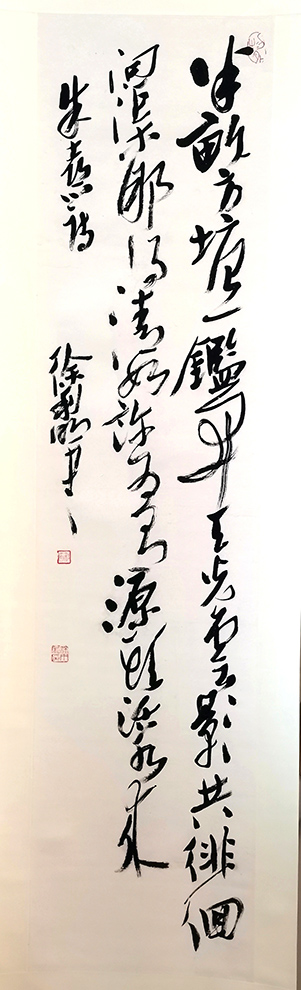 半畝方塘一鑑開天光雲影共徘徊
問渠那得清如許為有源頭活水來
朱熹詩
徐